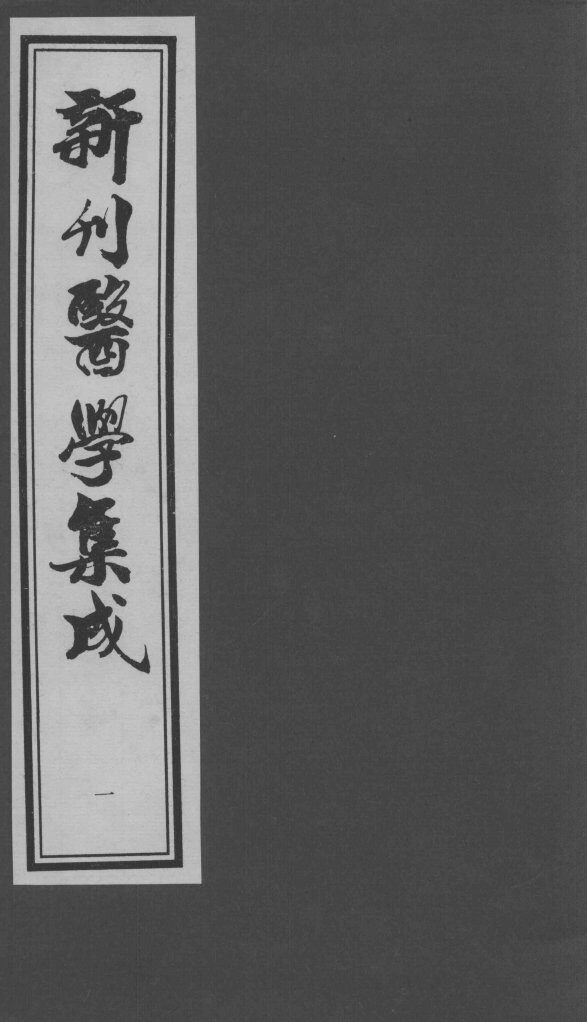 新刊醫學集成
一